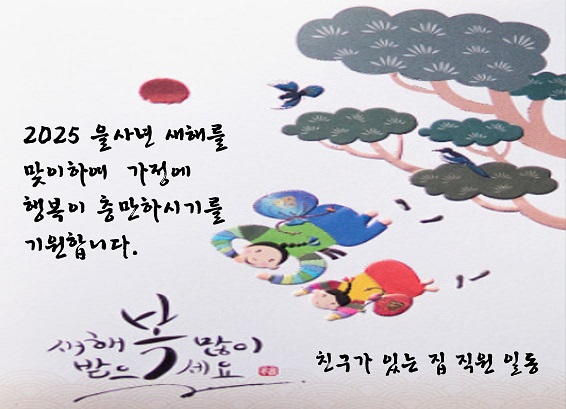 2025 을사년 새해를
맞이하여 가정에
행복이 충만하시기를
기원합니다.
새해 복 많이
받으세요
친구가 있는 집 직원 일동